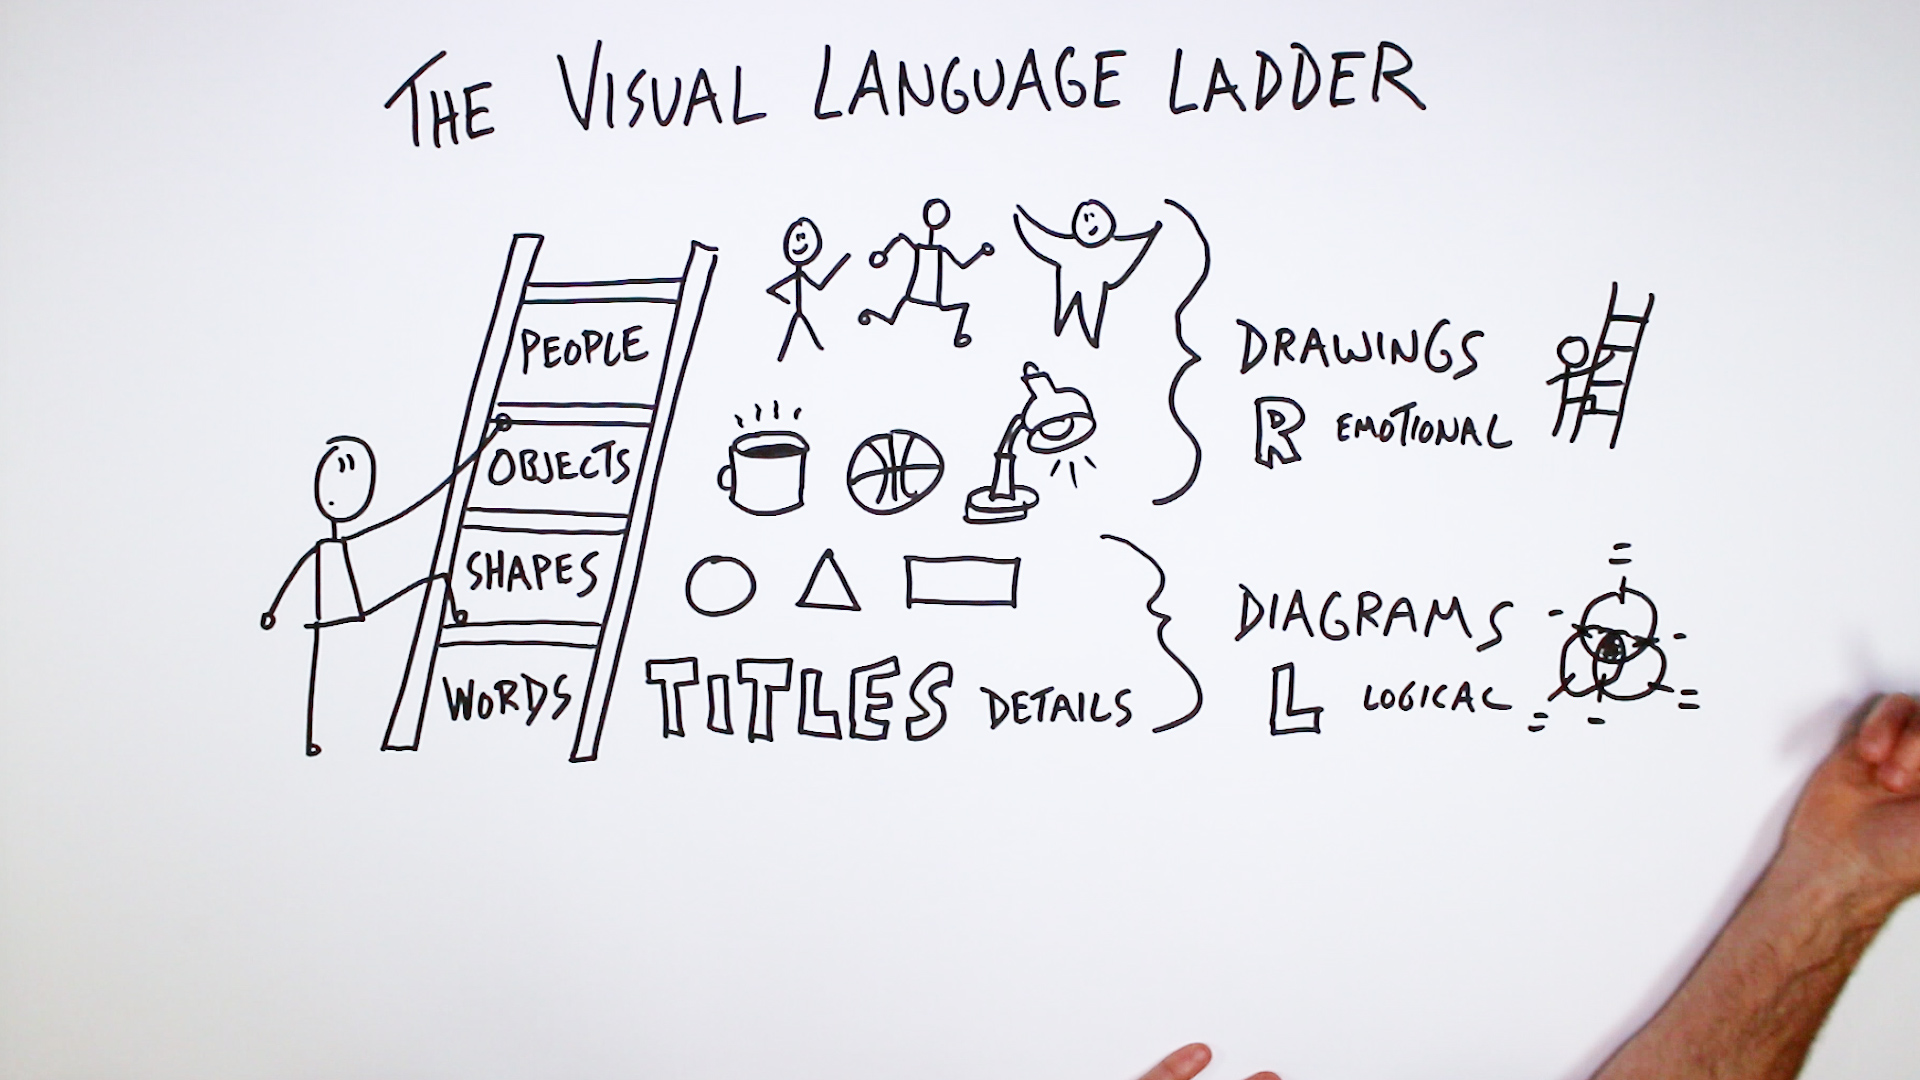 THE VISUAL LANGUAGE LADDER
PEOPLE
OBJECTS
SHAPES
WORDS
TITLES DETAILS
DRAWINGS
R EMOTIONAL
DIAGRAMS
L LOGICAL